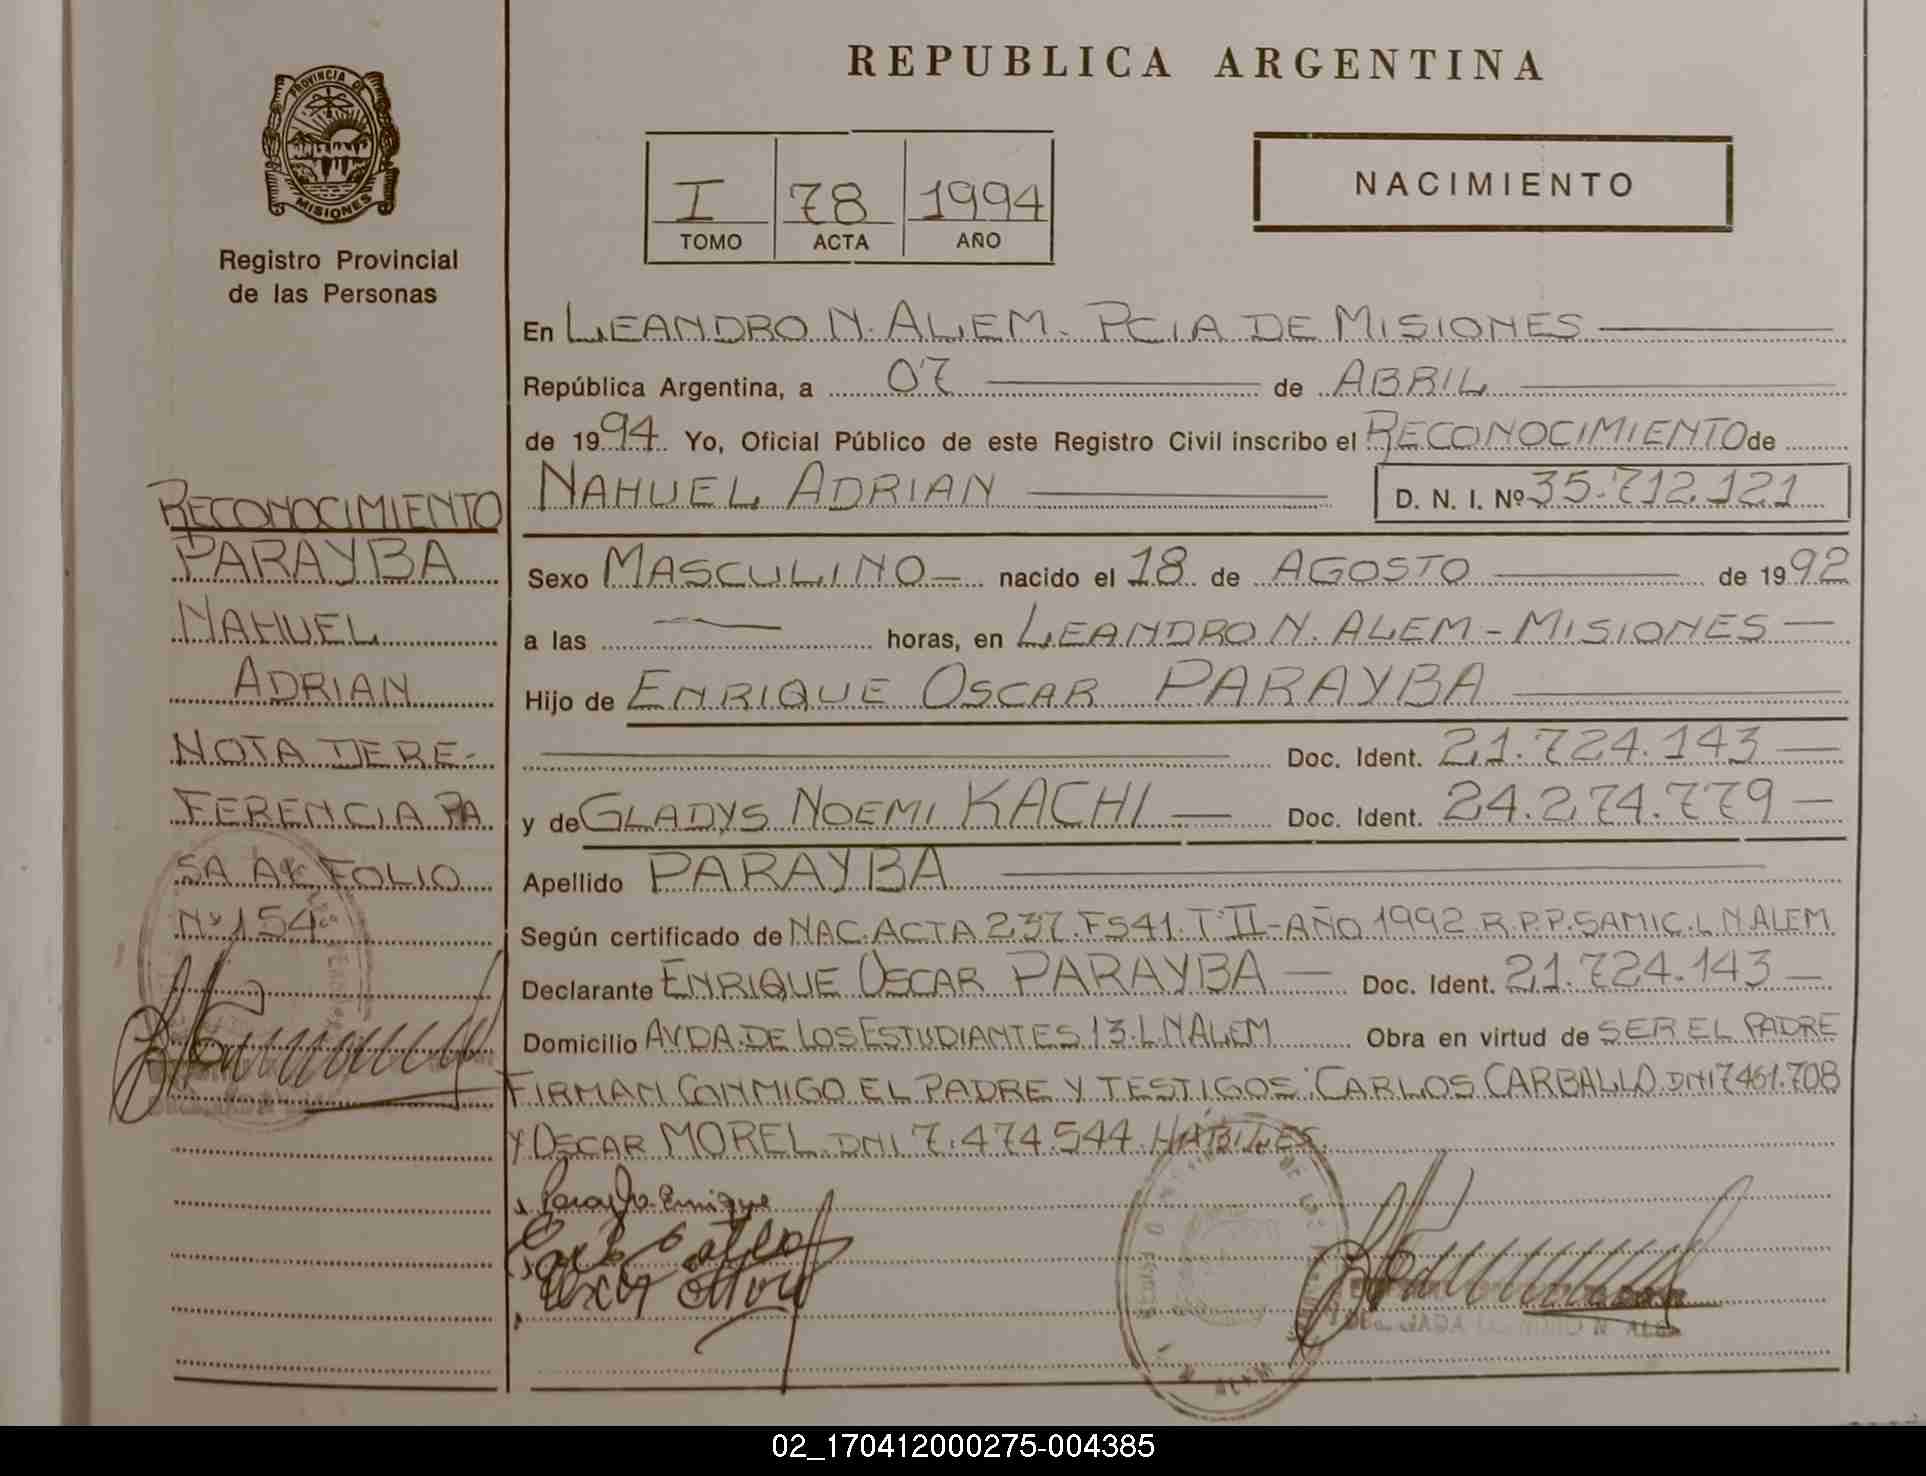 PROVINCIA DE
MISIONES
Registro Provincial
de las Personas
RECONOCIMIENTO
PARAYBA
NAHUEL
ADRIAN
NOTA DE RE-
FERENCIA PA
SA AL FOLIO
Nº 154
REPUBLICA ARGENTINA
I 78 1994
TOMO ACTA AÑO
NACIMIENTO
En LEANDRO N. ALEM. PCIA DE MISIONES
República Argentina, a 07 de ABRIL
de 1994 Yo, Oficial Público de este Registro Civil inscribo el RECONOCIMIENTO de
NAHUEL ADRIAN D. N. I. Nº 35.712.121
Sexo MASCULINO nacido el 18 de AGOSTO de 1992
a las horas, en LEANDRO N. ALEM - MISIONES
Hijo de ENRIQUE OSCAR PARAYBA
Doc. Ident. 21.724.143
y de GLADYS NOEMI KACHI Doc. Ident. 24.274.779
Apellido PARAYBA
Según certificado de NAC. ACTA 237. FS41. Tº II - AÑO 1992. R.P.P. SAMIC. L N. ALEM
Declarante ENRIQUE OSCAR PARAYBA Doc. Ident. 21.724.143
Domicilio AVDA. DE LOS ESTUDIANTES 13. L. N ALEM Obra en virtud de SER EL PADRE
FIRMAN CONMIGO EL PADRE Y TESTIGOS: CARLOS CARBALLO. DNI 7461.708
Y OSCAR MOREL. DNI 7.474.544. HABILES.
Parayba Enrique
02_170412000275-004385